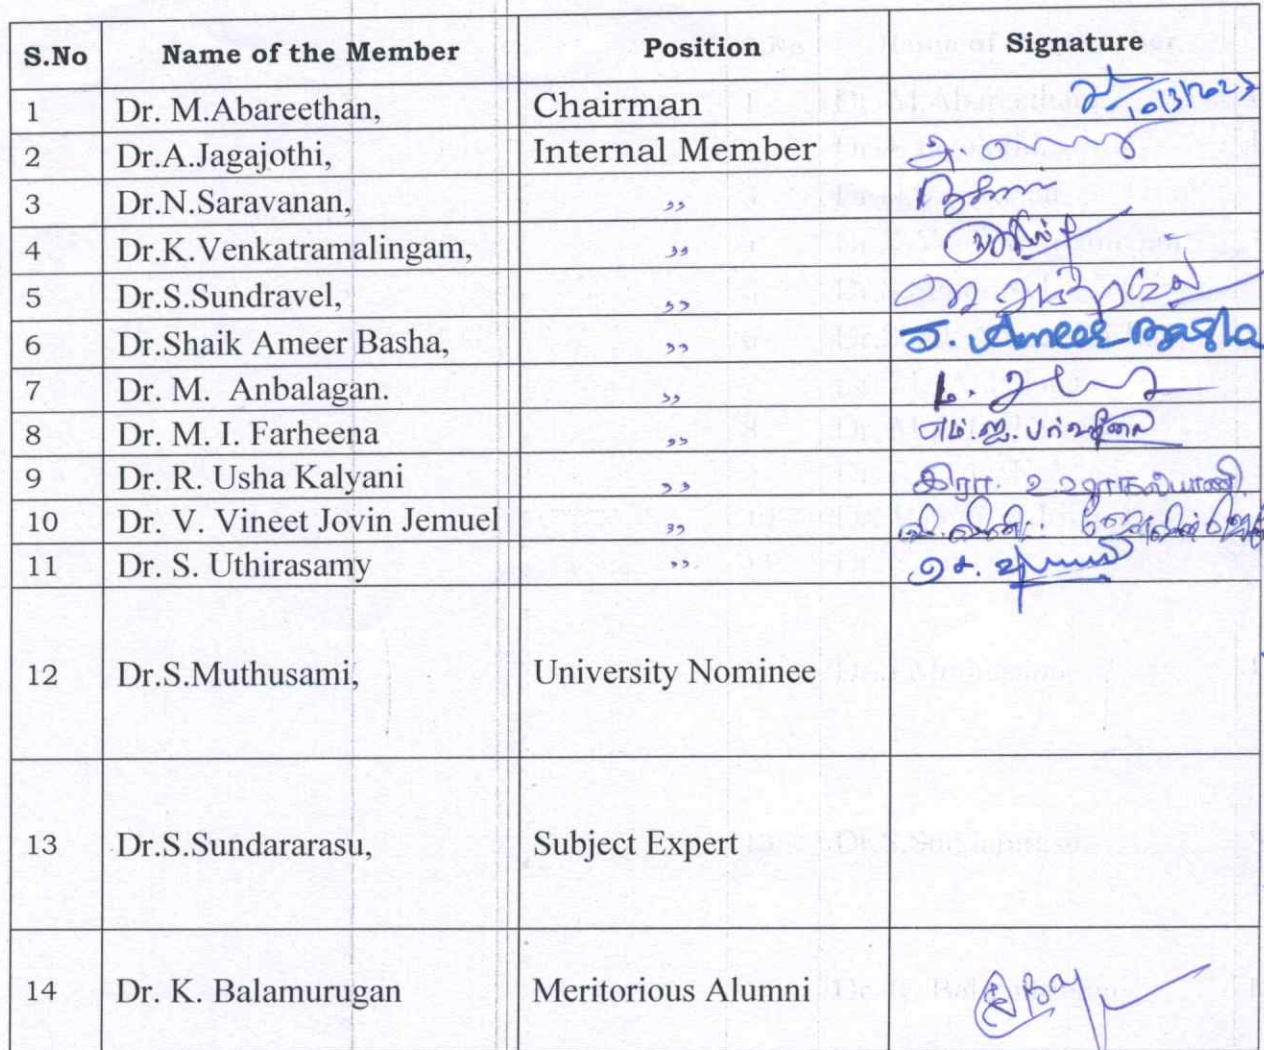 S.No Name of the Member Position Signature
1 Dr. M.Abareethan, Chairman 10/3/2023
2 Dr.A.Jagajothi, Internal Member
3 Dr.N.Saravanan, ,,
4 Dr.K.Venkatramalingam, ,,
5 Dr.S.Sundravel, ,,
6 Dr.Shaik Ameer Basha, ,, J. Ameer Basha
7 Dr. M. Anbalagan. ,,
8 Dr. M. I. Farheena ,, எம்.ஐ. பர்ஹீனா
9 Dr. R. Usha Kalyani ,, இரா. உஷாகல்யாணி
10 Dr. V. Vineet Jovin Jemuel ,,
11 Dr. S. Uthirasamy ,,
12 Dr.S.Muthusami, University Nominee
13 Dr.S.Sundararasu, Subject Expert
14 Dr. K. Balamurugan Meritorious Alumni